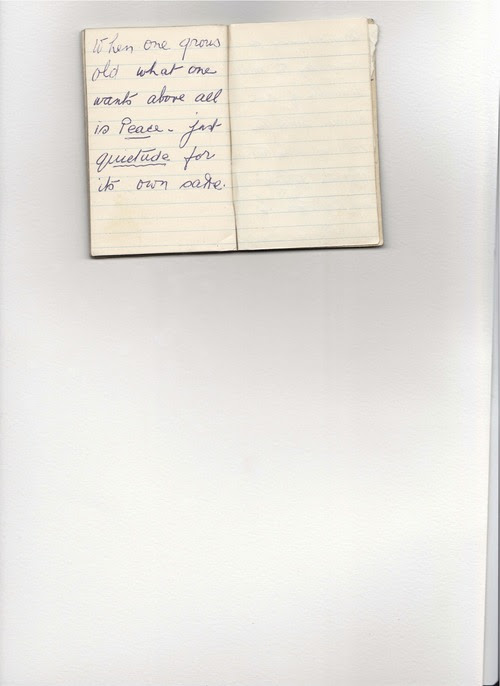 When one grows
old what one
wants above all
is Peace - just
quietude for
its own sake.